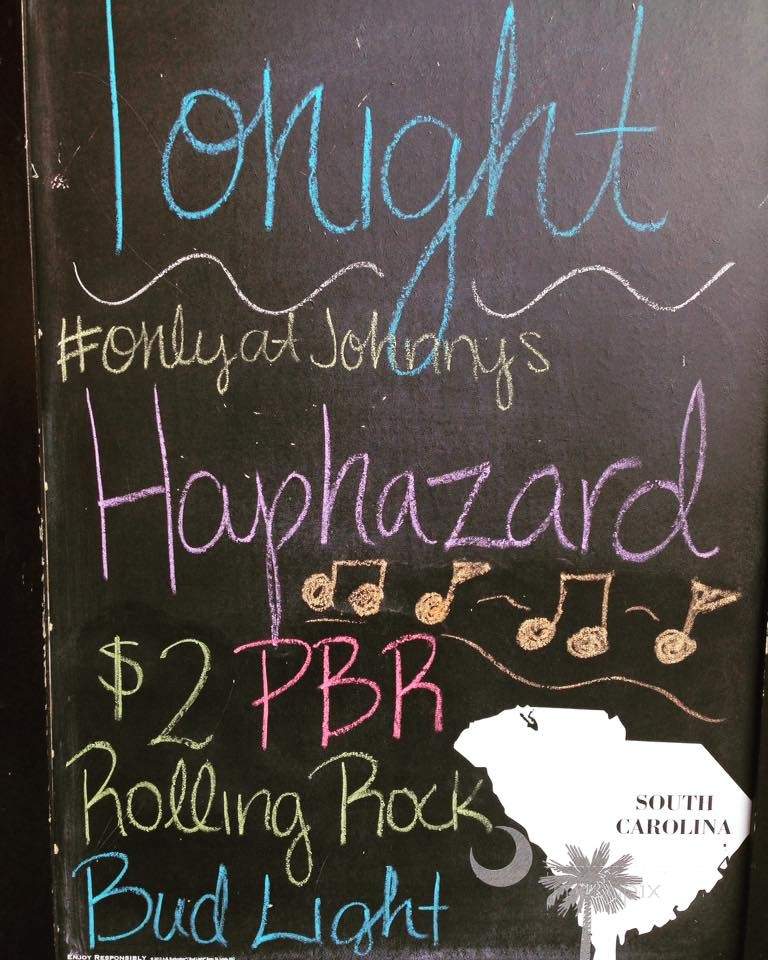 Tonight
#onlyatJohnnys
Haphazard
$2 PBR
Rolling Rock
SOUTH
CAROLINA
Bud Light
ENJOY RESPONSIBLY